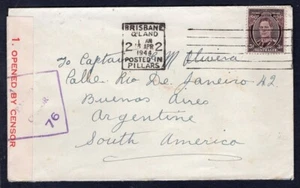 BRISBANE
Q'LAND
2 1 AM 2
APR
194
POSTED IN
PILLARS
1. OPENED BY CENSOR
76
To Captain M Olivera
Calle Rio De Janeiro 42
Buenos Aires
Argentine
South America